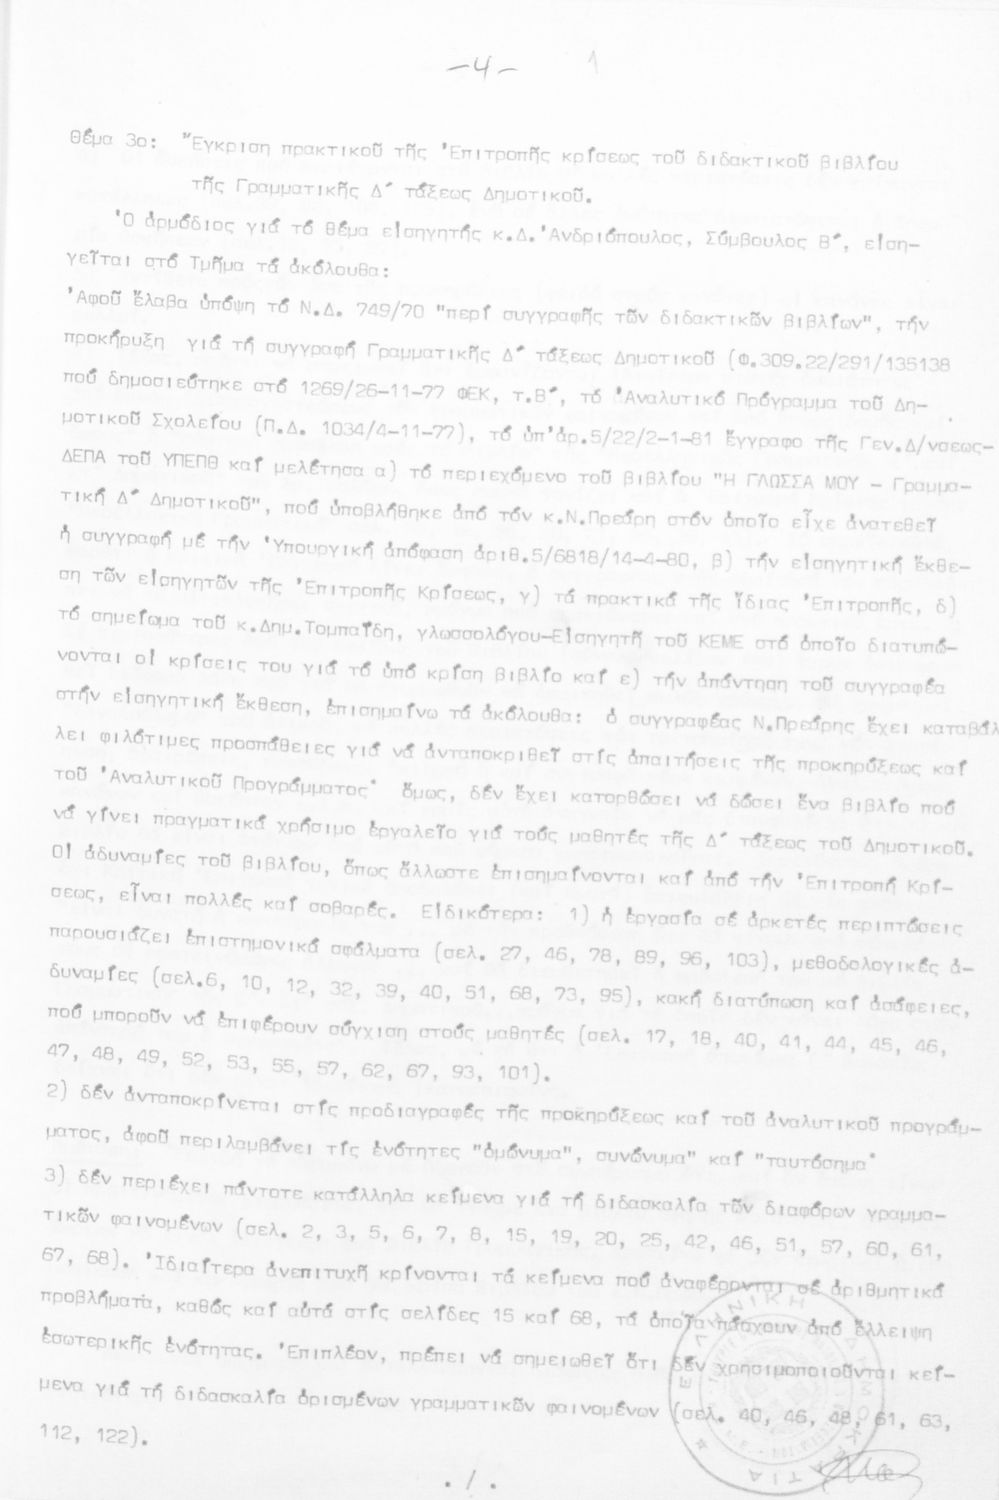 -4-
Θέμα 3ο: Ἔγκριση πρακτικοῦ τῆς Ἐπιτροπῆς κρίσεως τοῦ διδακτικοῦ βιβλίου
τῆς Γραμματικῆς Δ´ τάξεως Δημοτικοῦ.
Ὁ ἁρμόδιος γιά τό θέμα εἰσηγητής κ.Δ.Ἀνδριόπουλος, Σύμβουλος Β´, εἰση-
γεῖται στό Τμῆμα τά ἀκόλουθα:
Ἀφοῦ ἔλαβα ὑπόψη τό Ν.Δ. 749/70 "περί συγγραφῆς τῶν διδακτικῶν βιβλίων", τήν
προκήρυξη γιά τή συγγραφή Γραμματικῆς Δ´ τάξεως Δημοτικοῦ (Φ.309.22/291/135138
πού δημοσιεύτηκε στό 1269/26-11-77 ΦΕΚ, τ.Β´, τό Ἀναλυτικό Πρόγραμμα τοῦ Δη-
μοτικοῦ Σχολείου (Π.Δ. 1034/4-11-77), τό ὑπ'ἀρ.5/22/2-1-81 ἔγγραφο τῆς Γεν.Δ/νσεως-
ΔΕΠΑ τοῦ ΥΠΕΠΘ καί μελέτησα α) τό περιεχόμενο τοῦ βιβλίου "Η ΓΛΩΣΣΑ ΜΟΥ - Γραμμα-
τική Δ´ Δημοτικοῦ", πού ὑποβλήθηκε ἀπό τόν κ.Ν.Πρεάρη στόν ὁποῖο εἶχε ἀνατεθεῖ
ἡ συγγραφή μέ τήν Ὑπουργική ἀπόφαση ἀριθ.5/6818/14-4-80, β) τήν εἰσηγητική ἔκθε-
ση τῶν εἰσηγητῶν τῆς Ἐπιτροπῆς Κρίσεως, γ) τά πρακτικά τῆς ἴδιας Ἐπιτροπῆς, δ)
τό σημείωμα τοῦ κ.Δημ.Τομπαΐδη, γλωσσολόγου-Εἰσηγητῆ τοῦ ΚΕΜΕ στό ὁποῖο διατυπώ-
νονται οἱ κρίσεις του γιά τό ὑπό κρίση βιβλίο καί ε) τήν ἀπάντηση τοῦ συγγραφέα
στήν εἰσηγητική ἔκθεση, ἐπισημαίνω τά ἀκόλουθα: ὁ συγγραφέας Ν.Πρεάρης ἔχει καταβάλ
λει φιλότιμες προσπάθειες γιά νά ἀνταποκριθεῖ στίς ἀπαιτήσεις τῆς προκηρύξεως καί
τοῦ Ἀναλυτικοῦ Προγράμματος˙ ὅμως, δέν ἔχει κατορθώσει νά δώσει ἕνα βιβλίο πού
νά γίνει πραγματικά χρήσιμο ἐργαλεῖο γιά τούς μαθητές τῆς Δ´ τάξεως τοῦ Δημοτικοῦ.
Οἱ ἀδυναμίες τοῦ βιβλίου, ὅπως ἄλλωστε ἐπισημαίνονται καί ἀπό τήν Ἐπιτροπή Κρί-
σεως, εἶναι πολλές καί σοβαρές. Εἰδικότερα: 1) ἡ ἐργασία σέ ἀρκετές περιπτώσεις
παρουσιάζει ἐπιστημονικά σφάλματα (σελ. 27, 46, 78, 89, 96, 103), μεθοδολογικές ἀ-
δυναμίες (σελ.6, 10, 12, 32, 39, 40, 51, 68, 73, 95), κακή διατύπωση καί ἀσάφειες,
πού μποροῦν νά ἐπιφέρουν σύγχιση στούς μαθητές (σελ. 17, 18, 40, 41, 44, 45, 46,
47, 48, 49, 52, 53, 55, 57, 62, 67, 93, 101).
2) δέν ἀνταποκρίνεται στίς προδιαγραφές τῆς προκηρύξεως καί τοῦ ἀναλυτικοῦ προγράμ-
ματος, ἀφοῦ περιλαμβάνει τίς ἑνότητες "ὁμώνυμα", συνώνυμα" καί "ταυτόσημα˙
3) δέν περιέχει πάντοτε κατάλληλα κείμενα γιά τή διδασκαλία τῶν διαφόρων γραμμα-
τικῶν φαινομένων (σελ. 2, 3, 5, 6, 7, 8, 15, 19, 20, 25, 42, 46, 51, 57, 60, 61,
67, 68). Ἰδιαίτερα ἀνεπιτυχῆ κρίνονται τά κείμενα πού ἀναφέρονται σέ ἀριθμητικά
προβλήματα, καθώς καί αὐτά στίς σελίδες 15 καί 68, τά ὁποῖα πάσχουν ἀπό ἔλλειψη
ἐσωτερικῆς ἑνότητας. Ἐπιπλέον, πρέπει νά σημειωθεῖ ὅτι δέν χρησιμοποιοῦνται κεί-
μενα γιά τή διδασκαλία ὁρισμένων γραμματικῶν φαινομένων (σελ. 40, 46, 48, 61, 63,
112, 122).
ΕΛΛΗΝΙΚΗ ΔΗΜΟΚΡΑΤΙΑ
./.